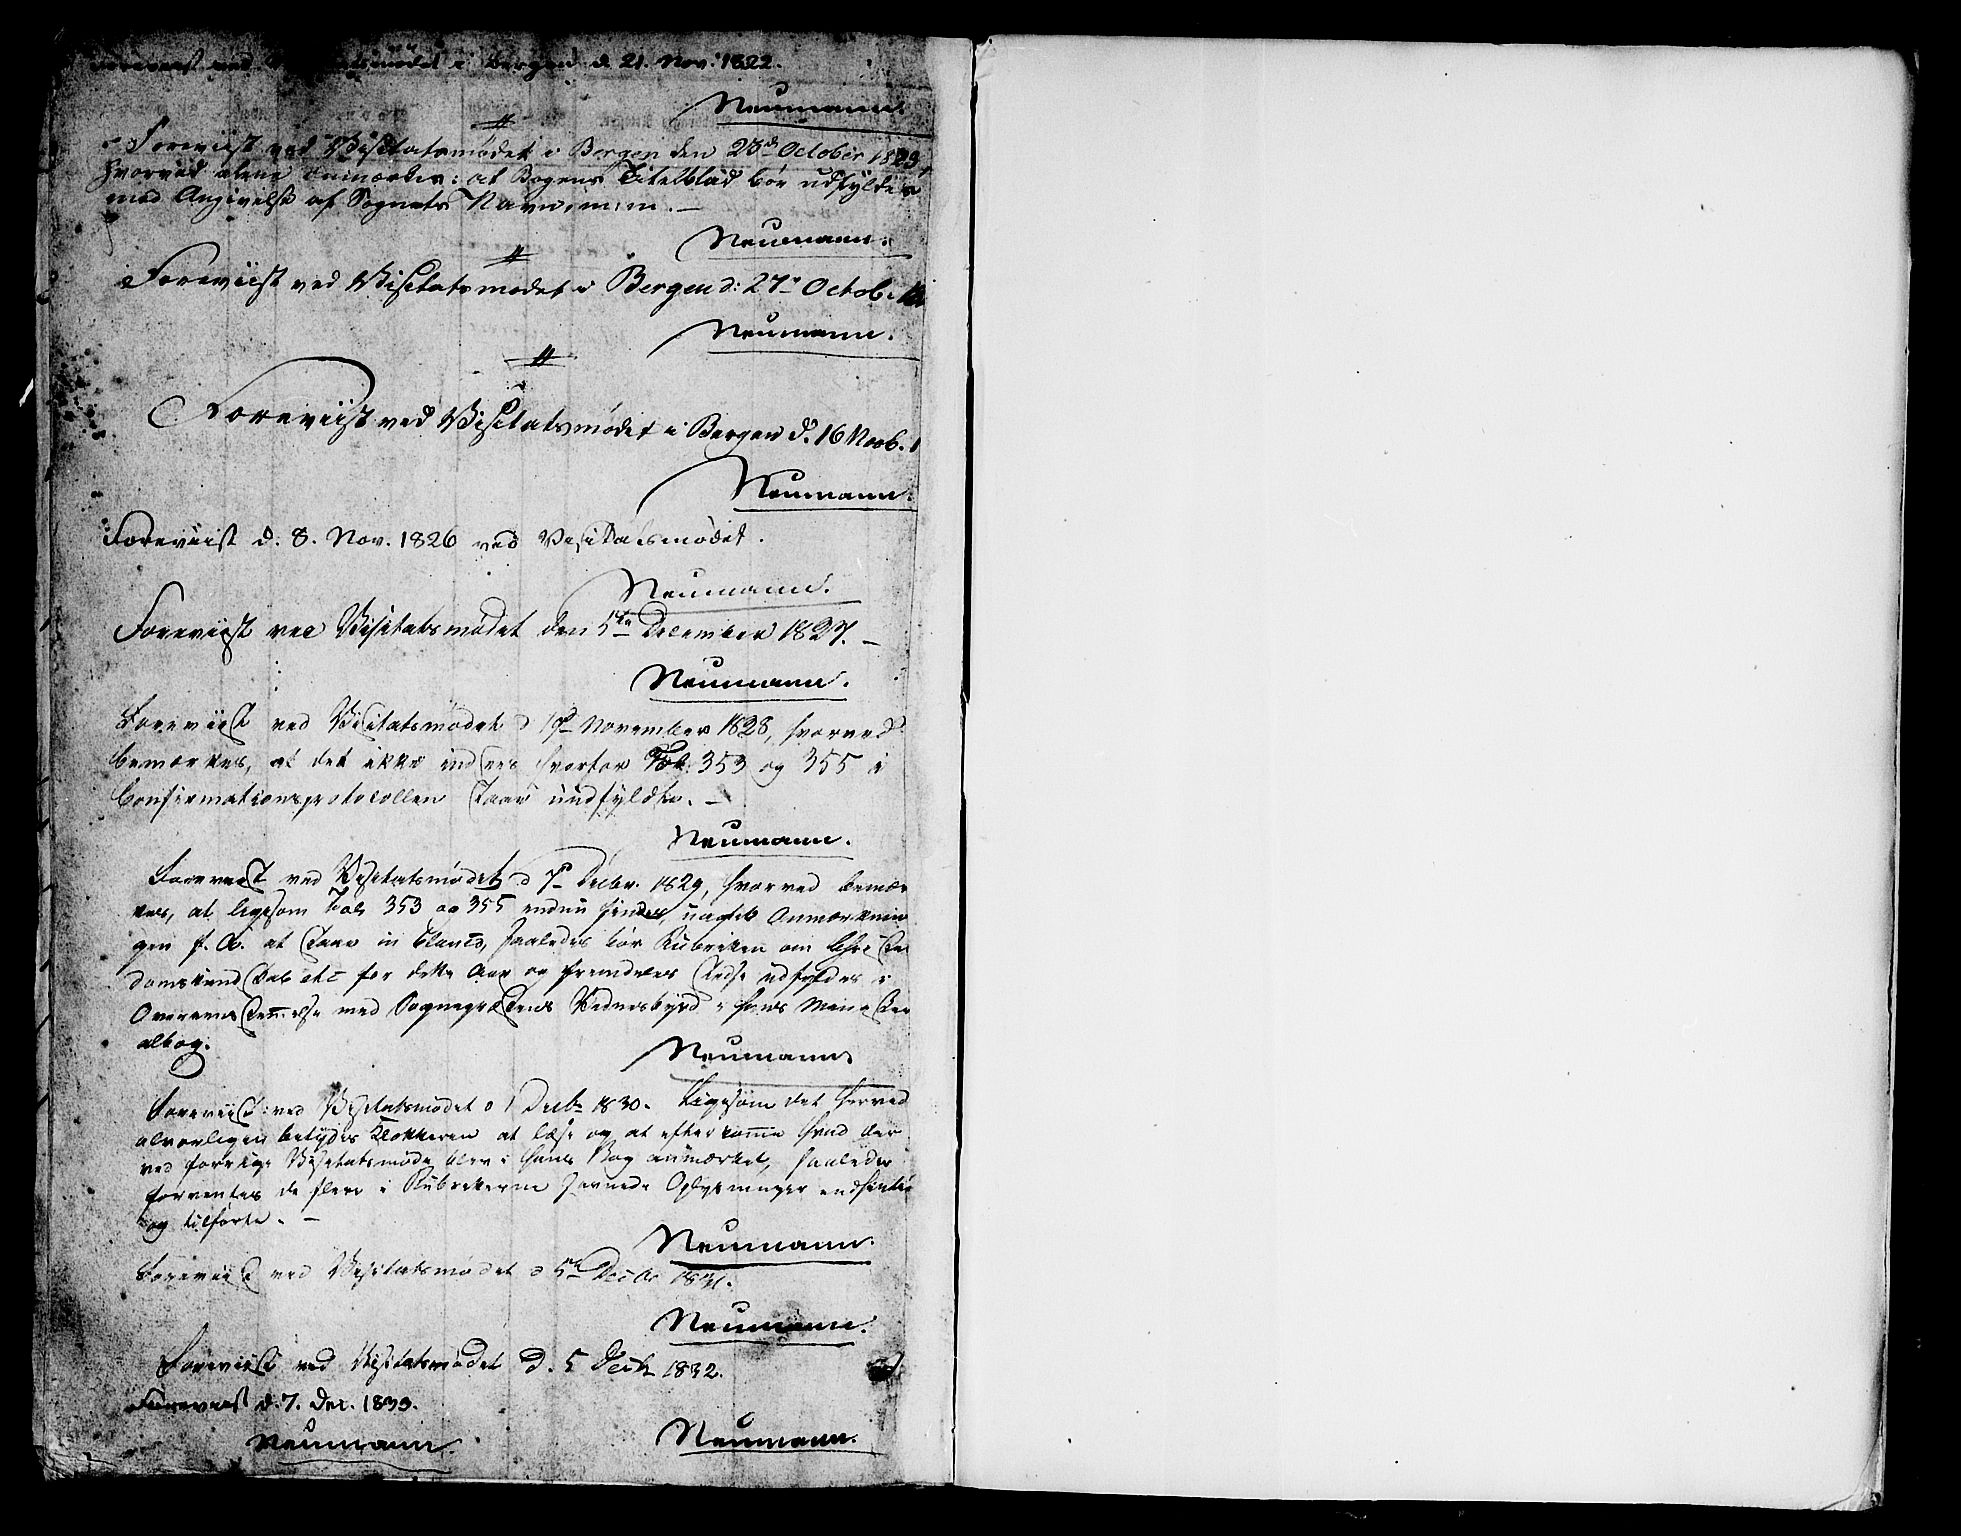 Foreviist ved Visitatsmødet i Bergen d. 21. Nov: 1822.
Neumann.
Foreviist ved Visitatsmødet i Bergen den 23de October 1823,
hvorved alene anmærkes: at Bogens Titelblad bør udfyldes
med Angivelse af Sognets Navn, m: m. –
Neumann.
Foreviist ved Visitatsmødet i Bergen d: 27de Octob.
Neumann.
Foreviist ved Visitatsmødet i Bergen d. 16 Novb. 1
Neumann.
Foreviist d. 8. Nov. 1826 ved Visitatsmødet.
Neumann.
Foreviist ved Visitatsmødet den 5te December 1827. –
Neumann.
Foreviist ved Visitatsmødet d November 1828, hvorved
bemærkes, at det ikke indsees hvorfor Fol. 353 og 355 i
Confirmationsprotocollen staar uudfyldte. –
Neumann.
Foreviist ved Visitatsmødet d 7de Decbr. 1829, hvorved bemær-
kes, at ligesom Fol. 353 og 355 endnu findes, uagtet Anmærknin
gen f. A. at staae in blanco, saaledes bør Rubriken om Christen
domskundskab etc for dette Aar og fremdeles stedse udfyldes i
Overensstemmelse med Sognepræstens Vidnesbyrd i hans Minister
ialbog.
Neumann.
Foreviist ved Visitatsmødet d 1 Decbr 1830. Ligesom det herved
alvorligen betydes Klokkeren at læse og at efterkomme hvad der
ved forrige Visitatsmøde blev i hans Bog anmærket, saaledes
forventes de flere i Rubrikerne savnede Oplysninger indhentede
og tilførte. –
Neumann.
Foreviist ved Visitatsmødet d 5te Decbr 1831.
Neumann.
Foreviist ved Visitatsmødet d. 5 Decbr 1832.
Foreviist d. 7. Dec. 1833.
Neumann. Neumann.